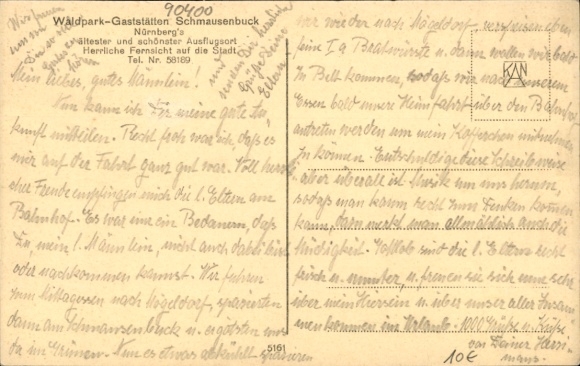 90400
Waldpark-Gaststätten Schmausenbuck
Nürnberg's
ältester und schönster Ausflugsort
Herrliche Fernsicht auf die Stadt
Tel. Nr. 58189
Wir freuen
uns von
Dir zu
hören
und
senden Dir herzlich
Grüße Deine
Eltern
Mein liebes, gutes Mannlein!
Nun kann ich Dir meine gute An-
kunft mitteilen. Recht froh war ich, daß es
mir auf der Fahrt ganz gut war. Voll herzli-
cher Freude empfingen mich die l. Eltern am
Bahnhof. Es war nur ein Bedauern, daß
Du, mein l. Männlein, nicht auch dabei bist
oder nachkommen kannst. Wir fuhren
zum Mittagessen nach Mögeldorf, spazierten
dann am Schmausenbuck u. ergötzten uns
da im Grünen. Nun es etwas abkühlt spazieren
wir wieder nach Mögeldorf, verspeisen eben
feine I a Bratwürste u. dann wollen wir bald
in Bett kommen, sodaß wir nach unserem
Essen bald unsere Heimfahrt über den Bahnhof
antreten werden um mein Köfferchen mitnehmen
zu können. Entschuldige diese Schreibweise
aber überall ist Musik um uns herum,
sodaß man kaum recht zum Denken kommen
kann, dann merkt man allmählich auch die
Müdigkeit. Gottlob sind die l. Eltern recht
frisch u. munter, u. freuen sie sich nun sehr
über mein Hiersein u. über unser aller Zusam-
menkommen im Urlaub. 1000 Grüße u. Küsse
von Deiner Herzi-
KAN
5161
10€